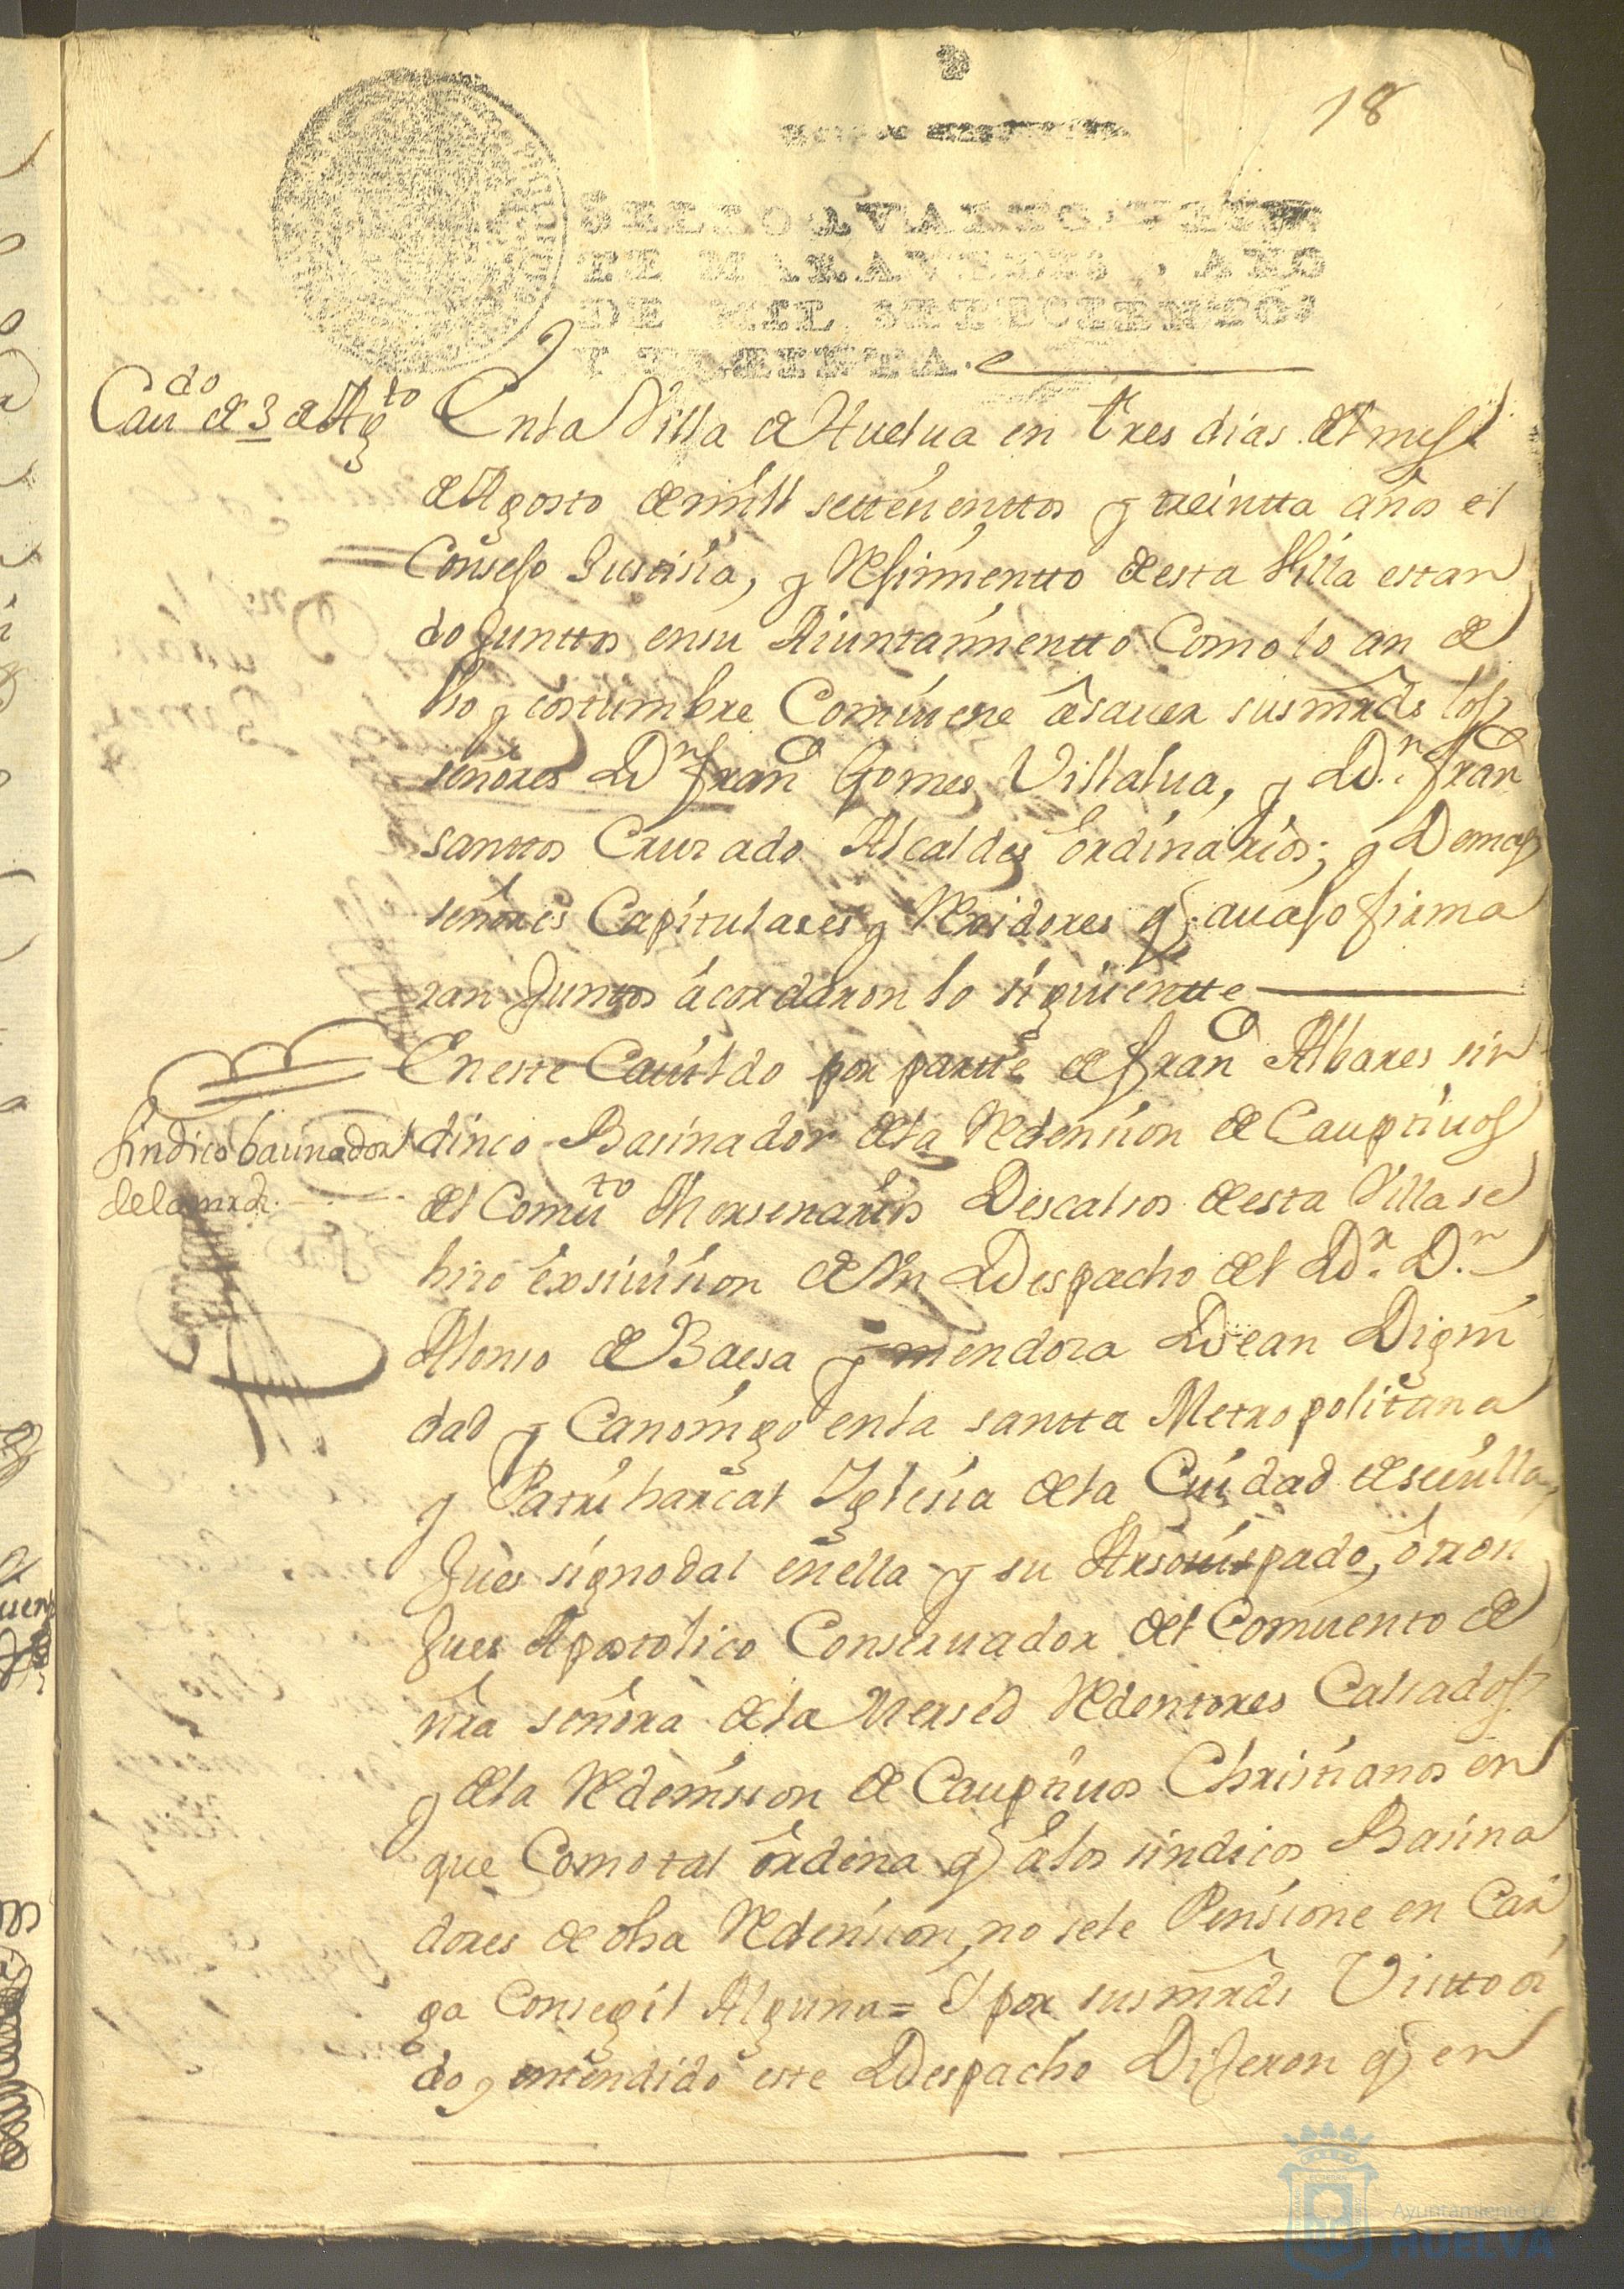 18
SELLO QVARTO, VEIN
TE MARAVEDIS, AÑO
DE MIL SETECIENTOS
Y TREINTA.
Caudo de 3 de Agto
En la Villa de Huelua en tres dias del mes
de Agosto de mill settesienttos y treintta años el
Consejo Justisia, y Rejimientto de esta Villa estan
do junttos en su Aiuntamientto Como lo an de
Uso y costumbre Comuiene âsauer sus mrds los
señores Dn Frano Gomes Villalua, y Dn. Frano
santtos Cruzado Alcaldes ordinarios; y Demas
señores Capitulares y Rexidores q auajo firma
ran Junttos acordaron lo siguientte
En este Cauildo por partte de Frano Albares sin
Sindico basinador
de la mrd.
dinco Basinador de la Redension de Cauptiuos
del Comuto Mersenarios Descalsos de esta Villa se
hizo exsiuision de Vn Despacho del Dr. Dn.
Alonso de Baesa y mendoza Dean Digni
dad y Canonigo en la santta Metropolitana
y Patriharcal Yglesia de la Ciudad de seuilla
Jues signodal en ella y su Arsouispado,
Jues Apostolico Conseruador del Comuento de
nra señora de la Mersed Redentores Calsados
y de la Redemsion de Cauptiuos Christianos en
que Como tal ordena q a los sindicos Basina
dores de dha Redension, no se le Pensione en Car
ga Consegil Alguna = Y por sus mrds Vistto oi
do y entendido este Despacho Dijeron q en
Ayuntamiento de
HUELVA